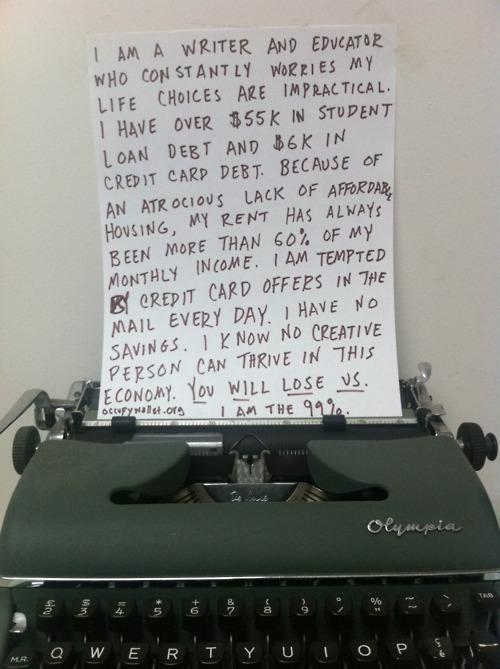 I AM A WRITER AND EDUCATOR
WHO CONSTANTLY WORRIES MY
LIFE CHOICES ARE IMPRACTICAL.
I HAVE OVER $55K IN STUDENT
LOAN DEBT AND $6K IN
CREDIT CARD DEBT. BECAUSE OF
AN ATROCIOUS LACK OF AFFORDABLE
HOUSING, MY RENT HAS ALWAYS
BEEN MORE THAN 60% OF MY
MONTHLY INCOME. I AM TEMPTED
BY CREDIT CARD OFFERS IN THE
MAIL EVERY DAY. I HAVE NO
SAVINGS. I KNOW NO CREATIVE
PERSON CAN THRIVE IN THIS
ECONOMY. YOU WILL LOSE US.
occupywallst.org I AM THE 99%.
De Luxe
Olympia
2 3 4 5 6 7 8 9 % " TAB
M.R. Q W E R T Y U I O P